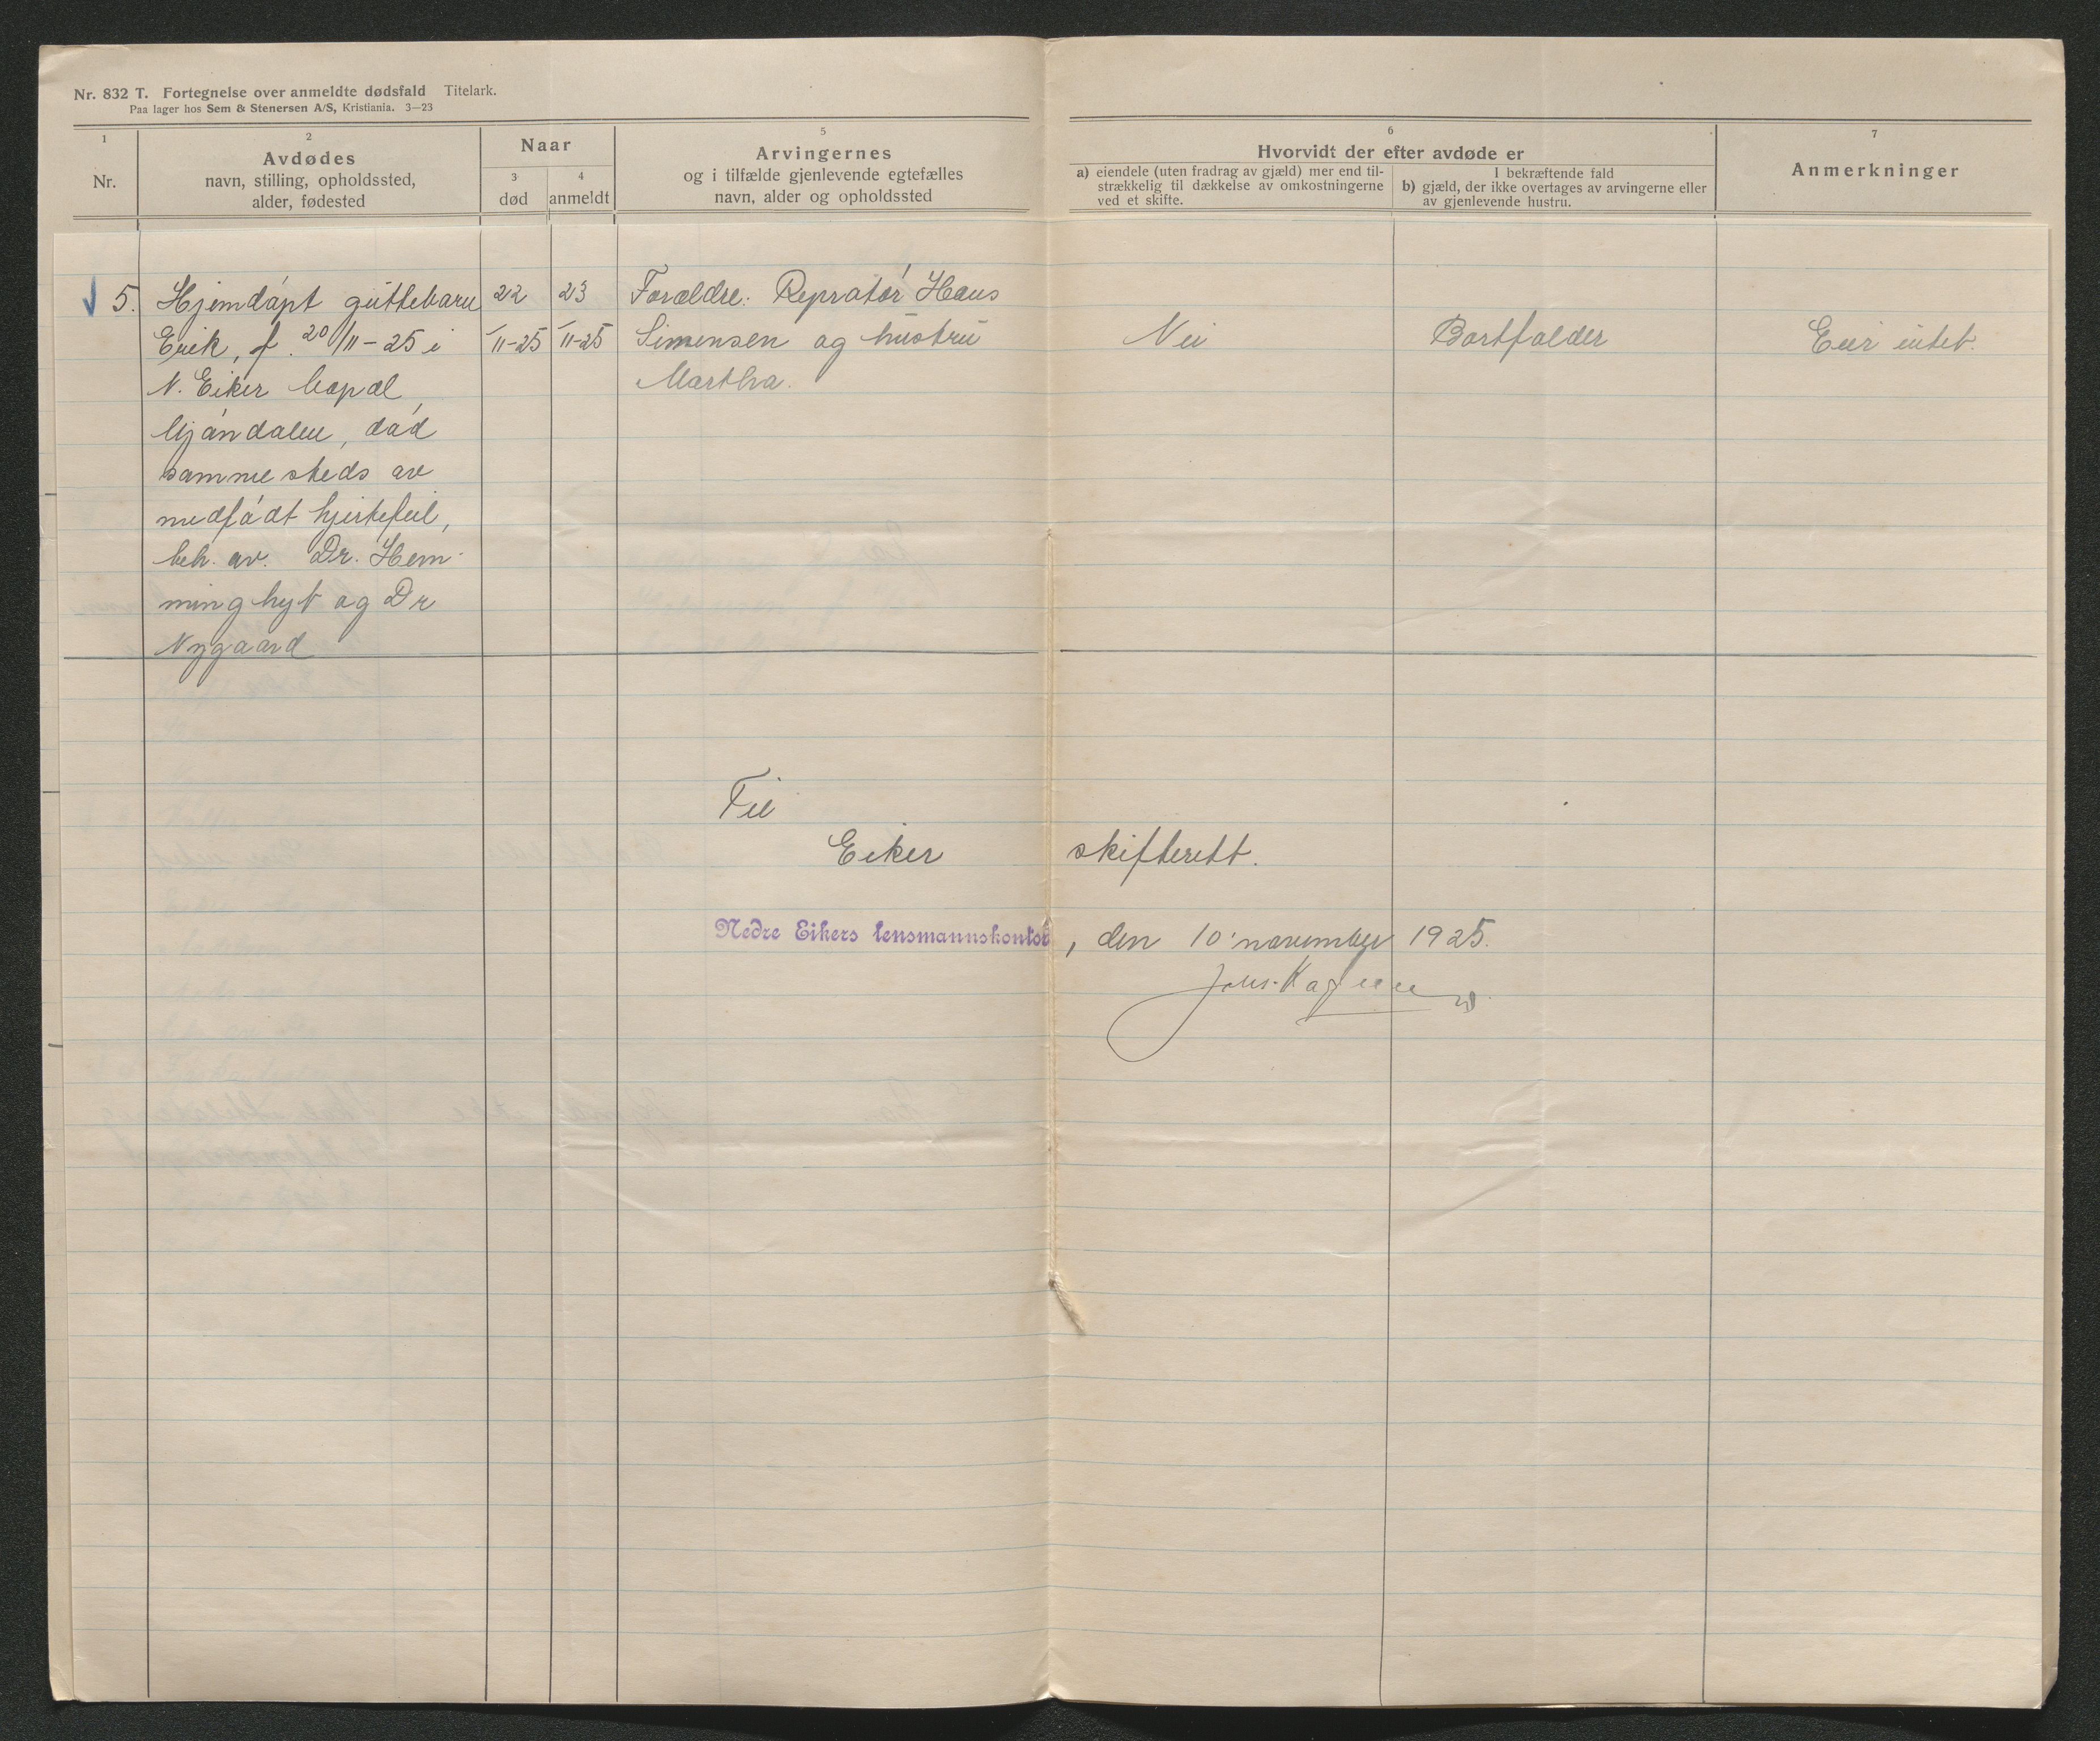 Nr. 832 T. Fortegnelse over anmeldte dødsfald Titelark.
Paa lager hos Sem & Stenersen A/S, Kristiania. 3—23
1
Nr.
2
Avdødes
navn, stilling, opholdssted,
alder, fødested
Naar
3
død
4
anmeldt
5
Arvingernes
og i tilfælde gjenlevende egtefælles
navn, alder og opholdssted
6
Hvorvidt der efter avdøde er
a) eiendele (uten fradrag av gjæld) mer end til-
strækkelig til dækkelse av omkostningerne
ved et skifte.
I bekræftende fald
b) gjæld, der ikke overtages av arvingerne eller
av gjenlevende hustru.
7
Anmerkninger
5.
Hjemdøpt guttebarn
Erik, f. 20/11-25 i
N. Eiker kapel,
Mjøndalen, død
sammesteds av
medfødt hjertefeil,
beh. av. Dr. Hem-
minghyt og Dr
Nygaard
22
/11-25
23
/11-25
Forældre: Repratør Hans
Simensen og hustru
Martha.
Nei
Bortfalder
Eier intet.
Til
Eiker skifterett.
Nedre Eikers lensmannskontor, den 10 november 1925.